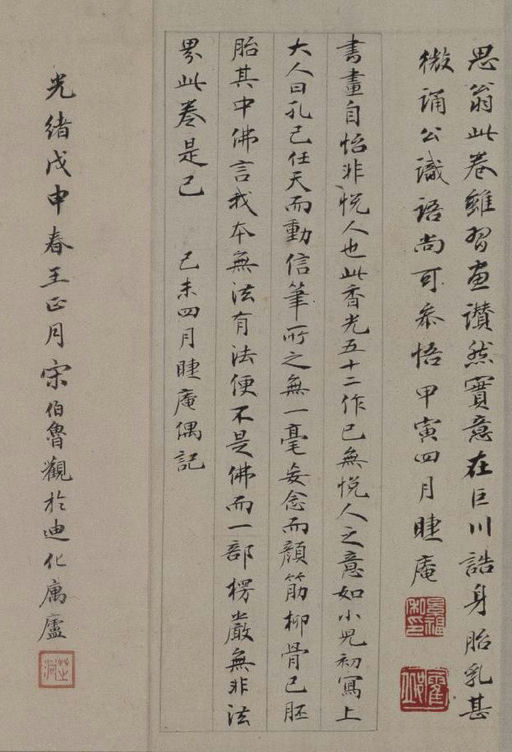 思翁此卷雖習畫讚然實意在巨川誥身胎乳甚
微誦公識語尚可參悟甲寅四月睫庵
書畫自怡非悅人也此香光五十二作已無悅人之意如小兒初寫上
大人曰孔已任天而動信筆所之無一毫妄念而顏筋柳骨已胚
胎其中佛言我本無法有法便不是佛而一部楞嚴無非法
界此卷是已　己未四月睫庵偶記
光緒戊申春王正月宋伯魯觀於迪化寓廬
景福私印